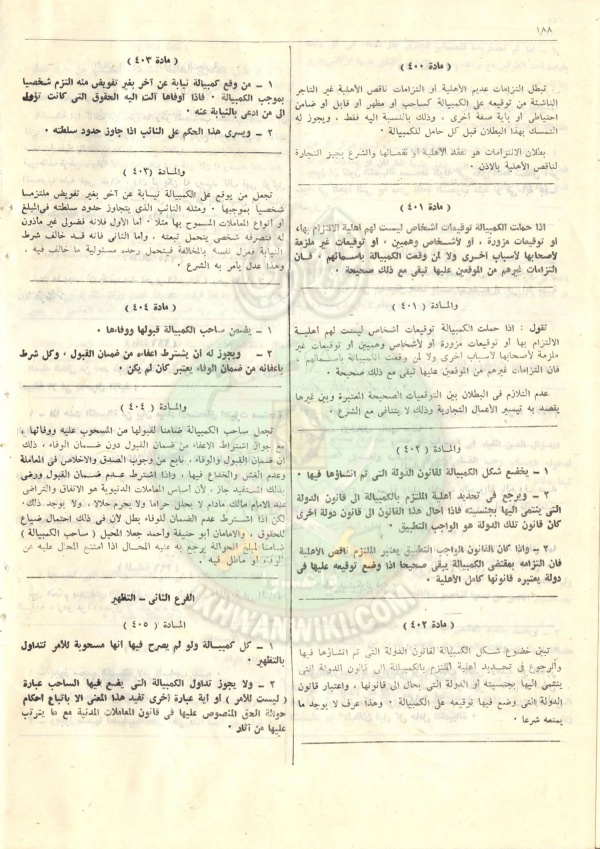 ١٨٨
( مادة ٤٠٠ )
تبطل التزامات عديم الأهلية أو التزامات ناقص الأهلية غير التاجر
الناشئة من توقيعه على الكمبيالة كساحب أو مظهر أو قابل أو ضامن
احتياطى أو بأية صفة أخرى ، وذلك بالنسبة اليه فقط ، ويجوز له
التمسك بهذا البطلان قبل كل حامل للكمبيالة .
بطلان الالتزامات هو لفقد الأهلية أو نقصانها والشرع يجيز التجارة
لناقص الأهلية بالاذن .
( مادة ٤٠١ )
اذا حملت الكمبيالة توقيعات أشخاص ليست لهم أهلية الالتزام بها،
أو توقيعات مزورة ، أو لأشخاص وهميين ، أو توقيعات غير ملزمة
لأصحابها لأسباب أخرى ولا لمن وقعت الكمبيالة بأسمائهم ، فان
التزامات غيرهم من الموقعين عليها تبقى مع ذلك صحيحة .
والمادة ( ٤٠١ )
تقول : اذا حملت الكمبيالة توقيعات أشخاص ليست لهم أهلية
الالتزام بها أو توقيعات مزورة أو لأشخاص وهميين أو توقيعات غير
ملزمة لأصحابها لأسباب أخرى ولا لمن وقعت الكمبيالة بأسمائهم ،
فان التزامات غيرهم من الموقعين عليها تبقى مع ذلك صحيحة .
عدم التلازم فى البطلان بين التوقيعات الصحيحة المعتبرة وبين غيرها
يقصد به تيسير الأعمال التجارية وذلك لا يتنافى مع الشرع .
والمادة ( ٤٠٢ )
١ – يخضع شكل الكمبيالة لقانون الدولة التى تم انشاؤها فيها .
٢ – ويرجع فى تحديد أهلية الملتزم بالكمبيالة الى قانون الدولة
التى ينتمى اليها بجنسيته فاذا أحال هذا القانون الى قانون دولة أخرى
كان قانون تلك الدولة هو الواجب التطبيق .
٣ – واذا كان القانون الواجب التطبيق يعتبر الملتزم ناقص الأهلية
فان التزامه بمقتضى الكمبيالة يبقى صحيحا اذا وضع توقيعه عليها فى
دولة يعتبره قانونها كامل الأهلية .
( مادة ٤٠٢ )
تبين خضوع شكل الكمبيالة لقانون الدولة التى تم انشاؤها فيها
والرجوع فى تحديد أهلية الملتزم بالكمبيالة الى قانون الدولة التى
ينتمى اليها بجنسيته أو الدولة التى يحال الى قانونها ، واعتبار قانون
الدولة التى وضع فيها توقيعه على الكمبيالة . وهذا عرف لا يوجد ما
يمنعه شرعا .
( مادة ٤٠٣ )
١ – من وقع كمبيالة نيابة عن آخر بغير تفويض منه التزم شخصيا
بموجب الكمبيالة . فاذا أوفاها آلت اليه الحقوق التى كانت تؤول
الى من ادعى بالنيابة عنه .
٢ – ويسرى هذا الحكم على النائب اذا جاوز حدود سلطته .
والمادة ( ٤٠٣ )
تجعل من يوقع على الكمبيالة نيابة عن آخر بغير تفويض ملتزما
شخصيا بموجبها . ومثله النائب الذى يتجاوز حدود سلطته فى المبلغ
أو أنواع المعاملات المسموح بها مثلا . أما الأول فلأنه فضولى غير مأذون
له فتصرفه شخصى يتحمل تبعته ، وأما الثانى فانه قد خالف شرط
النيابة فعزل نفسه بالمخالفة فيتحمل وحده مسئولية ما خالف فيه .
وهذا عدل يأمر به الشرع .
( مادة ٤٠٤ )
١ – يضمن صاحب الكمبيالة قبولها ووفاءها .
٢ – ويجوز له أن يشترط اعفاءه من ضمان القبول ، وكل شرط
باعفائه من ضمان الوفاء يعتبر كأن لم يكن .
والمادة ( ٤٠٤ )
تجعل صاحب الكمبيالة ضامنا لقبولها من المسحوب عليه ووفائها ،
مع جواز اشتراط الاعفاء من ضمان القبول دون ضمان الوفاء ، ذلك
أن ضمان القبول والوفاء ، نابع من وجوب الصدق والاخلاص فى المعاملة
وعدم الغش والخداع فيها ، واذا اشترط عدم ضمان القبول ورضى
بذلك المستفيد جاز ، لأن أساس المعاملات الدنيوية هو الاتفاق والتراضى
عند الامام مالك مادام لا يحلل حراما ولا يحرم حلالا . ولا يوجد ذلك.
لكن اذا اشترط عدم الضمان للوفاء بطل لأن فى ذلك احتمال ضياع
للحقوق . والامامان أبو حنيفة وأحمد جعلا المحيل ( صاحب الكمبيالة )
ضامنا لمبلغ الحوالة يرجع به عليه المحال اذا امتنع المحال عليه عن
الوفاء أو ماطل فيه .
الفرع الثانى – التظهير
المادة ( ٤٠٥ )
١ – كل كمبيالة ولو لم يصرح فيها أنها مسحوبة للأمر تتداول
بالتظهير .
٢ – ولا يجوز تداول الكمبيالة التى يضع فيها الساحب عبارة
( ليست للأمر ) أو أية عبارة أخرى تفيد هذا المعنى الا باتباع أحكام
حوالة الحق المنصوص عليها فى قانون المعاملات المدنية مع ما يترتب
عليها من آثار .
IKHWANWIKI.COM